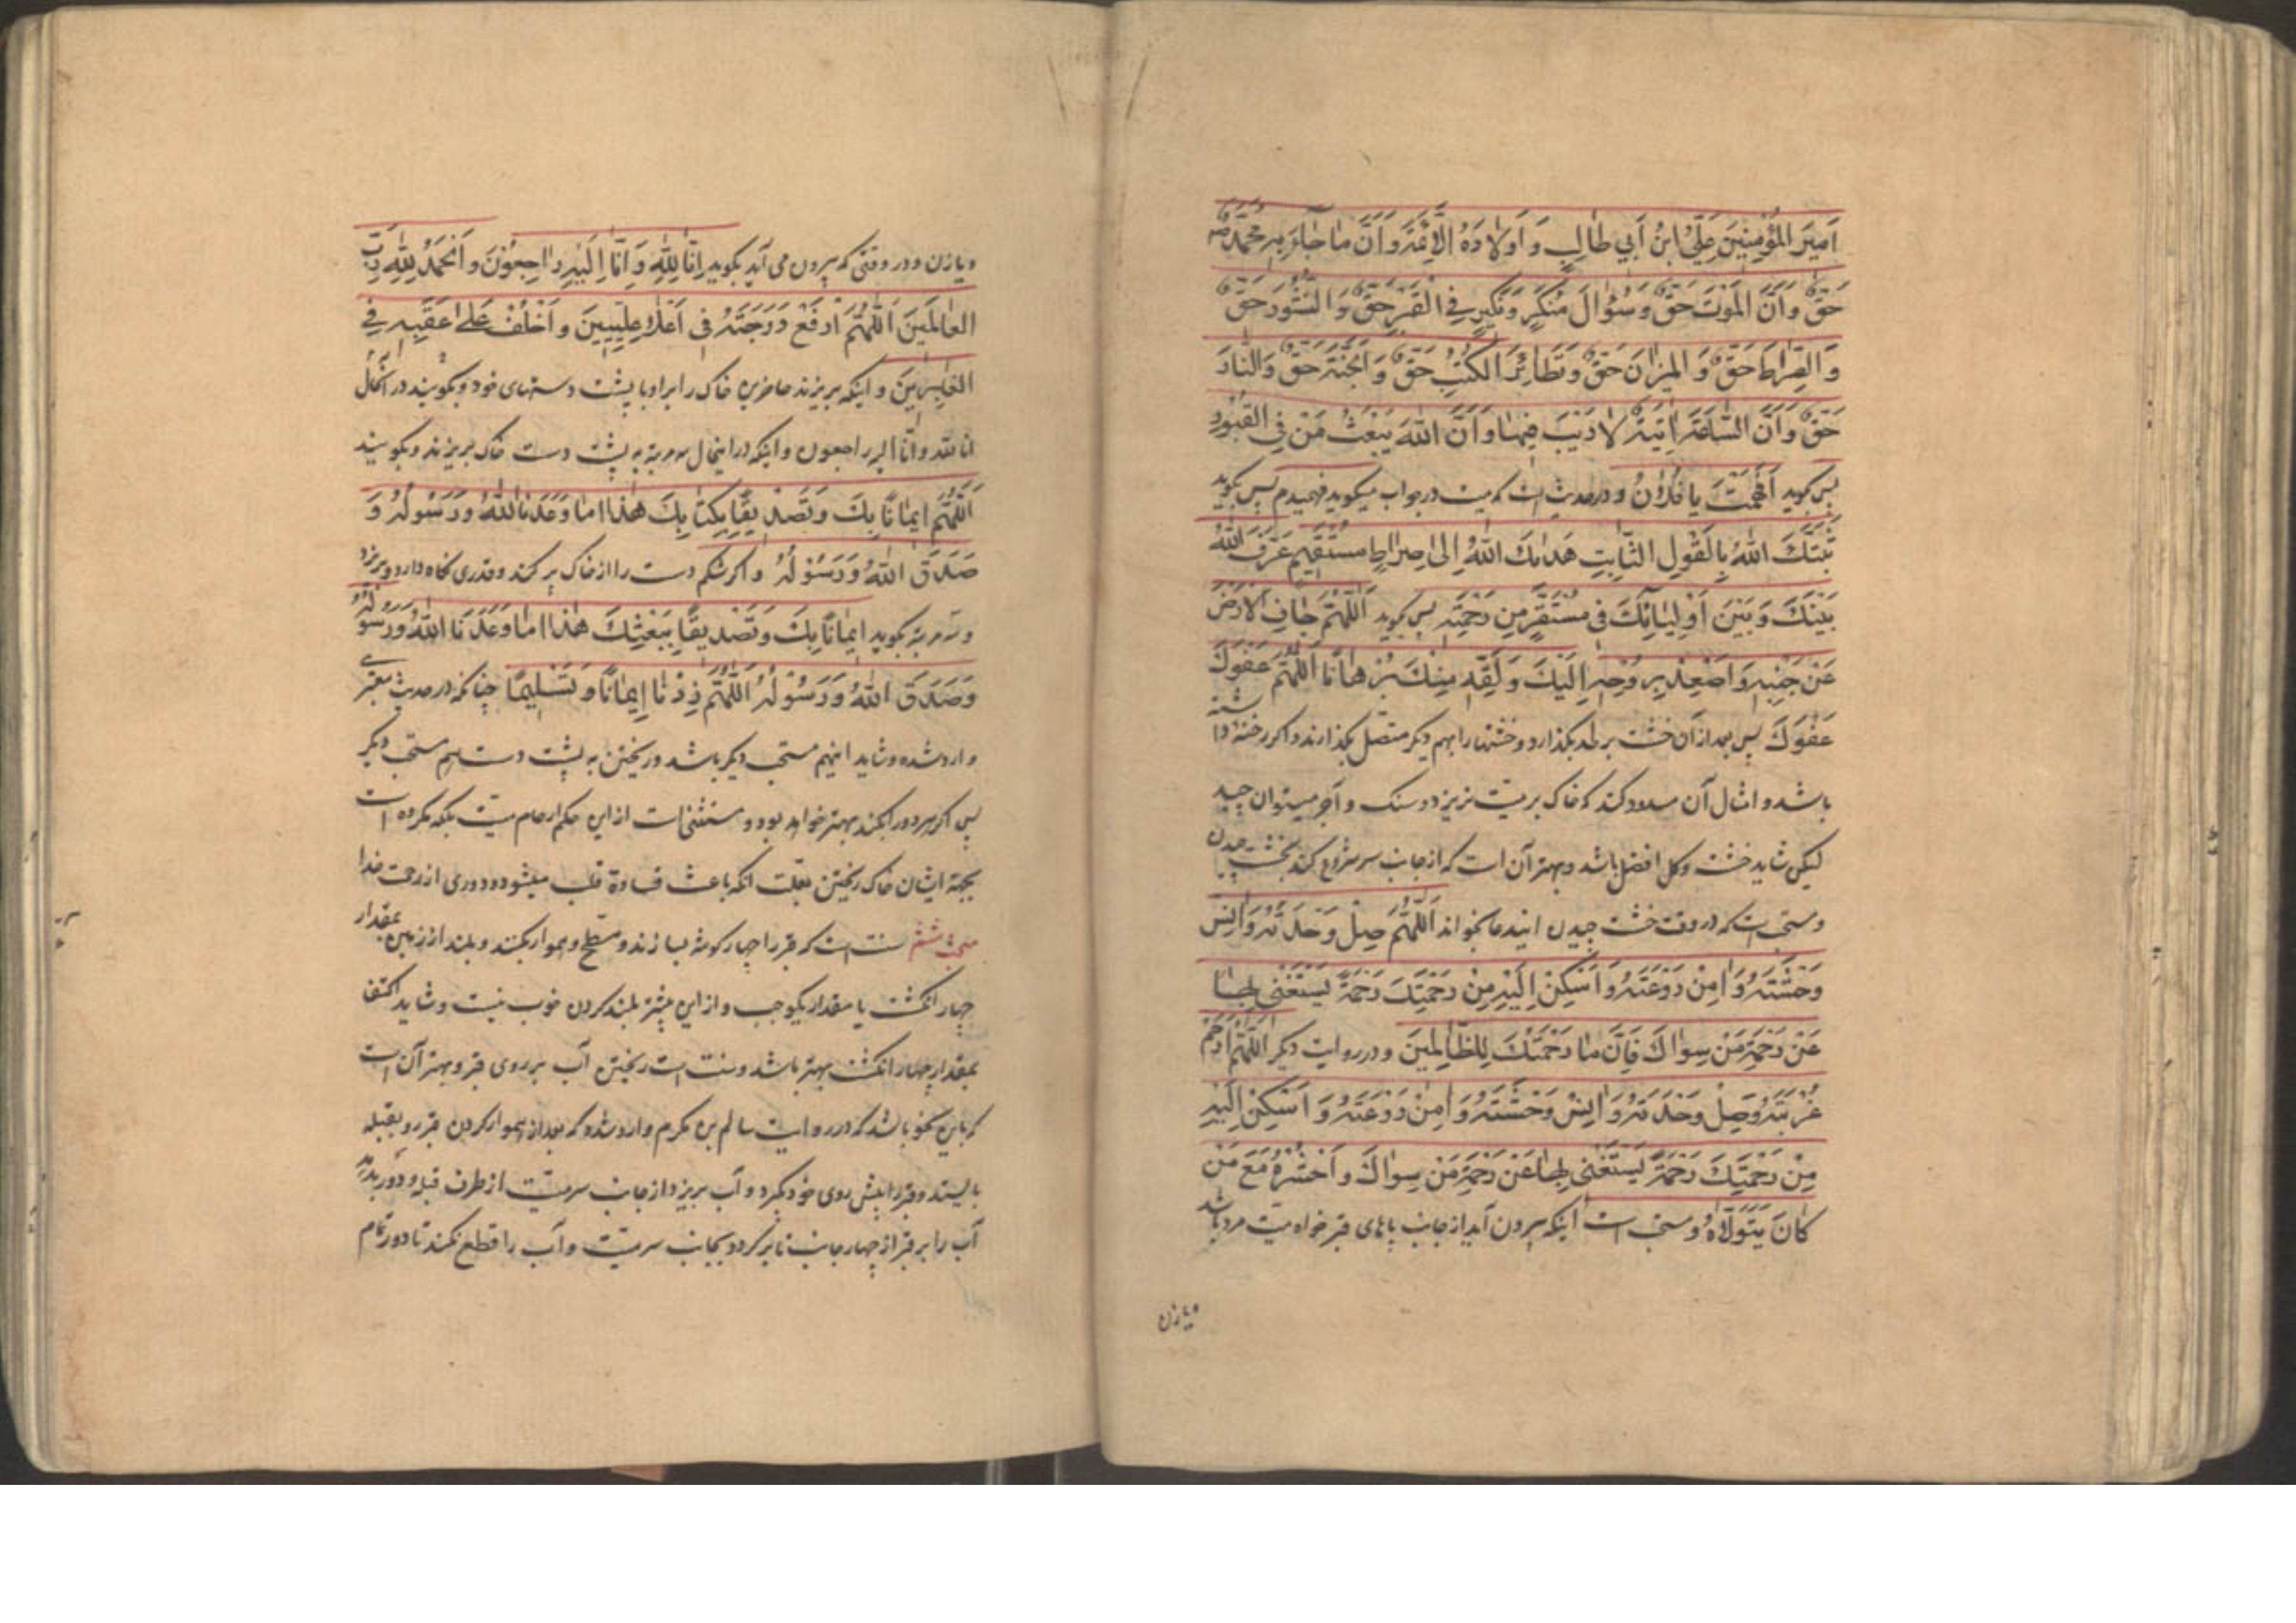 اَمیرَ المُؤمِنینَ عَلِیُّ ابنُ اَبی طالِبٍ وَ اَولادَهُ الاَئِمَّةَ وَ اَنَّ ما جآءَ بِهِ مُحَمَّدٌ ص
حَقٌّ وَ اَنَّ المَوتَ حَقٌّ وَ سُؤالَ مُنکَرٍ وَ نَکیرٍ فِی القَبرِ حَقٌّ وَ النُّشُورَ حَقٌّ
وَ الصِّراطَ حَقٌّ وَ المیزانَ حَقٌّ وَ تَطائُرَ الکُتُبِ حَقٌّ وَ الجَنَّةَ حَقٌّ وَ النّارَ
حَقٌّ وَ اَنَّ السّاعَةَ اتِیَةٌ لا رَیبَ فیها وَ اَنَّ اللهَ یَبعَثُ مَن فِی القُبُورِ
پس کوید اَفَهِمتَ یا فُلانُ و در حدیث است که میت در جواب میکوید فهمیدم پس بکوید
ثَبَّتَکَ اللهُ بِالقَولِ الثّابِتِ هَدیکَ اللهُ اِلی صِراطٍ مُستَقیمٍ عَرَّفَ اللهُ
بَینَکَ وَ بَینَ اَولِیائِکَ فی مُستَقَرٍّ مِن رَحمَتِه پس کوید اَللّهُمَّ جافِ الاَرضَ
عَن جَنبَیهِ وَ اصعِد بِرُوحِهِ اِلَیکَ وَ لَقِّهِ مِنکَ بُرهانًا اَللّهُمَّ عَفوَکَ
عَفوَکَ پس بعد از آن خشت بر لحد بکذارد و خشتها را بهم دیکر متصل بکذارند و اکر رخنه داشته
باشد و امثال آن مسدود کند که خاک بر میت نریزد و سنک و آجر میتوان چید
لیکن شاید خشت و کل افضل باشد و بهتر آن است که از جانب سر شروع کند بخشت چیدن
و مستحب است که در وقت خشت چیدن این دعا بخواند اَللّهُمَّ صِل وَحدَتَهُ وَ انِس
وَحشَتَهُ وَ امِن رَوعَتَهُ وَ اَسکِن اِلَیهِ مِن رَحمَتِکَ رَحمَةً یَستَغنی بِها
عَن رَحمَةِ مَن سِواکَ فَاِنَّ ما رَحمَتُکَ لِلظّالِمینَ و در روایت دیکر اَللّهُمَّ ارحَم
غُربَتَهُ وَ صِل وَحدَتَهُ وَ انِس وَحشَتَهُ وَ امِن رَوعَتَهُ وَ اَسکِن اِلَیهِ
مِن رَحمَتِکَ رَحمَةً یَستَغنی بِها عَن رَحمَةِ مَن سِواکَ وَ احشُرهُ مَعَ مَن
کانَ یَتَوَلّاهُ و مستحب است اینکه بیرون آید از جانب پاهای قبر خواه میت مرد باشد
و یا زن
و یا زن و در وقتی که بیرون می آید بکوید اِنّا لِلّهِ وَ اِنّا اِلَیهِ راجِعُونَ وَ الحَمدُ لِلّهِ رَبِّ
العالَمینَ اَللّهُمَّ ارفَع دَرَجَتَهُ فی اَعلا عِلِّیّینَ وَ اخلُف عَلی عَقِبِهِ فِی
الغابِرینَ و اینکه بریزند حاضرین خاک را بر او با پشت دستهای خود و بکویند در انحال
انا لله و انا الیه راجعون و اینکه در اینحال سه مرتبه به پشت دست خاک بریزند و بکویند
اَللّهُمَّ ایمانًا بِکَ وَ تَصدیقًا بِکِتابِکَ هذا ما وَعَدَنَا اللهُ وَ رَسُولُهُ وَ
صَدَقَ اللهُ وَ رَسُولُهُ و اکر شکم دست را از خاک پر کند و قدری نکاه دارد و بریزد
و سه مرتبه بکوید ایمانًا بِکَ وَ تَصدیقًا بِبَعثِکَ هذا ما وَعَدَنَا اللهُ وَ رَسُولُهُ
وَ صَدَقَ اللهُ وَ رَسُولُهُ اَللّهُمَّ زِدنا اِیمانًا وَ تَسلیمًا چنانکه در حدیث معتبری
وارد شده و شاید اینهم مستحب دیکر باشد و ریختن به پشت دست هم مستحب دیکر
پس اکر هر دو را بکند بهتر خواهد بود و مستثنی است از این حکم ارحام میت بلکه مکروه است
بجهة ایشان خاک ریختن بعلت آنکه باعث قساوة قلب میشود و دوری از رحمت خدا
مبحث ششم سنت است که قبر را چهار کوشه بسازند و مسطح و هموار بکنند و بلند از زمین بمقدار
چهار انکشت یا مقدار یکوجب و از این بیشتر بلند کردن خوب نیست و شاید اکتفا
بمقدار چهار انکشت بهتر باشد و سنت است ریختن آب بر روی قبر و بهتر آن است
که باین نحو باشد که در روایت سالم بن مکرم وارد شده که بعد از هموار کردن قبر رو بقبله
بایستد و قبر را پیش روی خود بکیرد و آب بریزد از جانب سر میت از طرف قبله و دور بدهد
آب را بر قبر از چهار جانب تا برکردد بجانب سر میت و آب را قطع نکند تا دور تمام